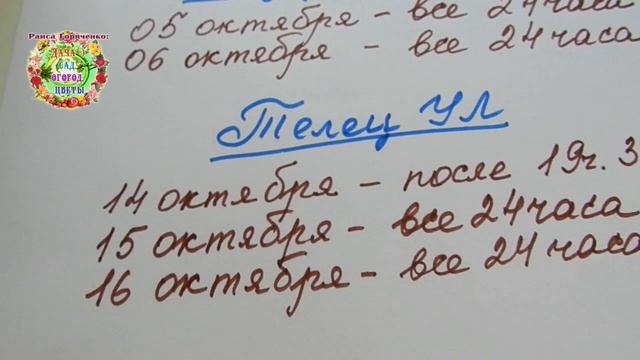 Раиса Горяченко:
ДАЧА
САД
ОГОРОД
ЦВЕТЫ
05 октября - все 24 часа
06 октября - все 24 часа
Телец УЛ
14 октября - после 19ч. 3
15 октября - все 24 часа
16 октября - все 24 часа